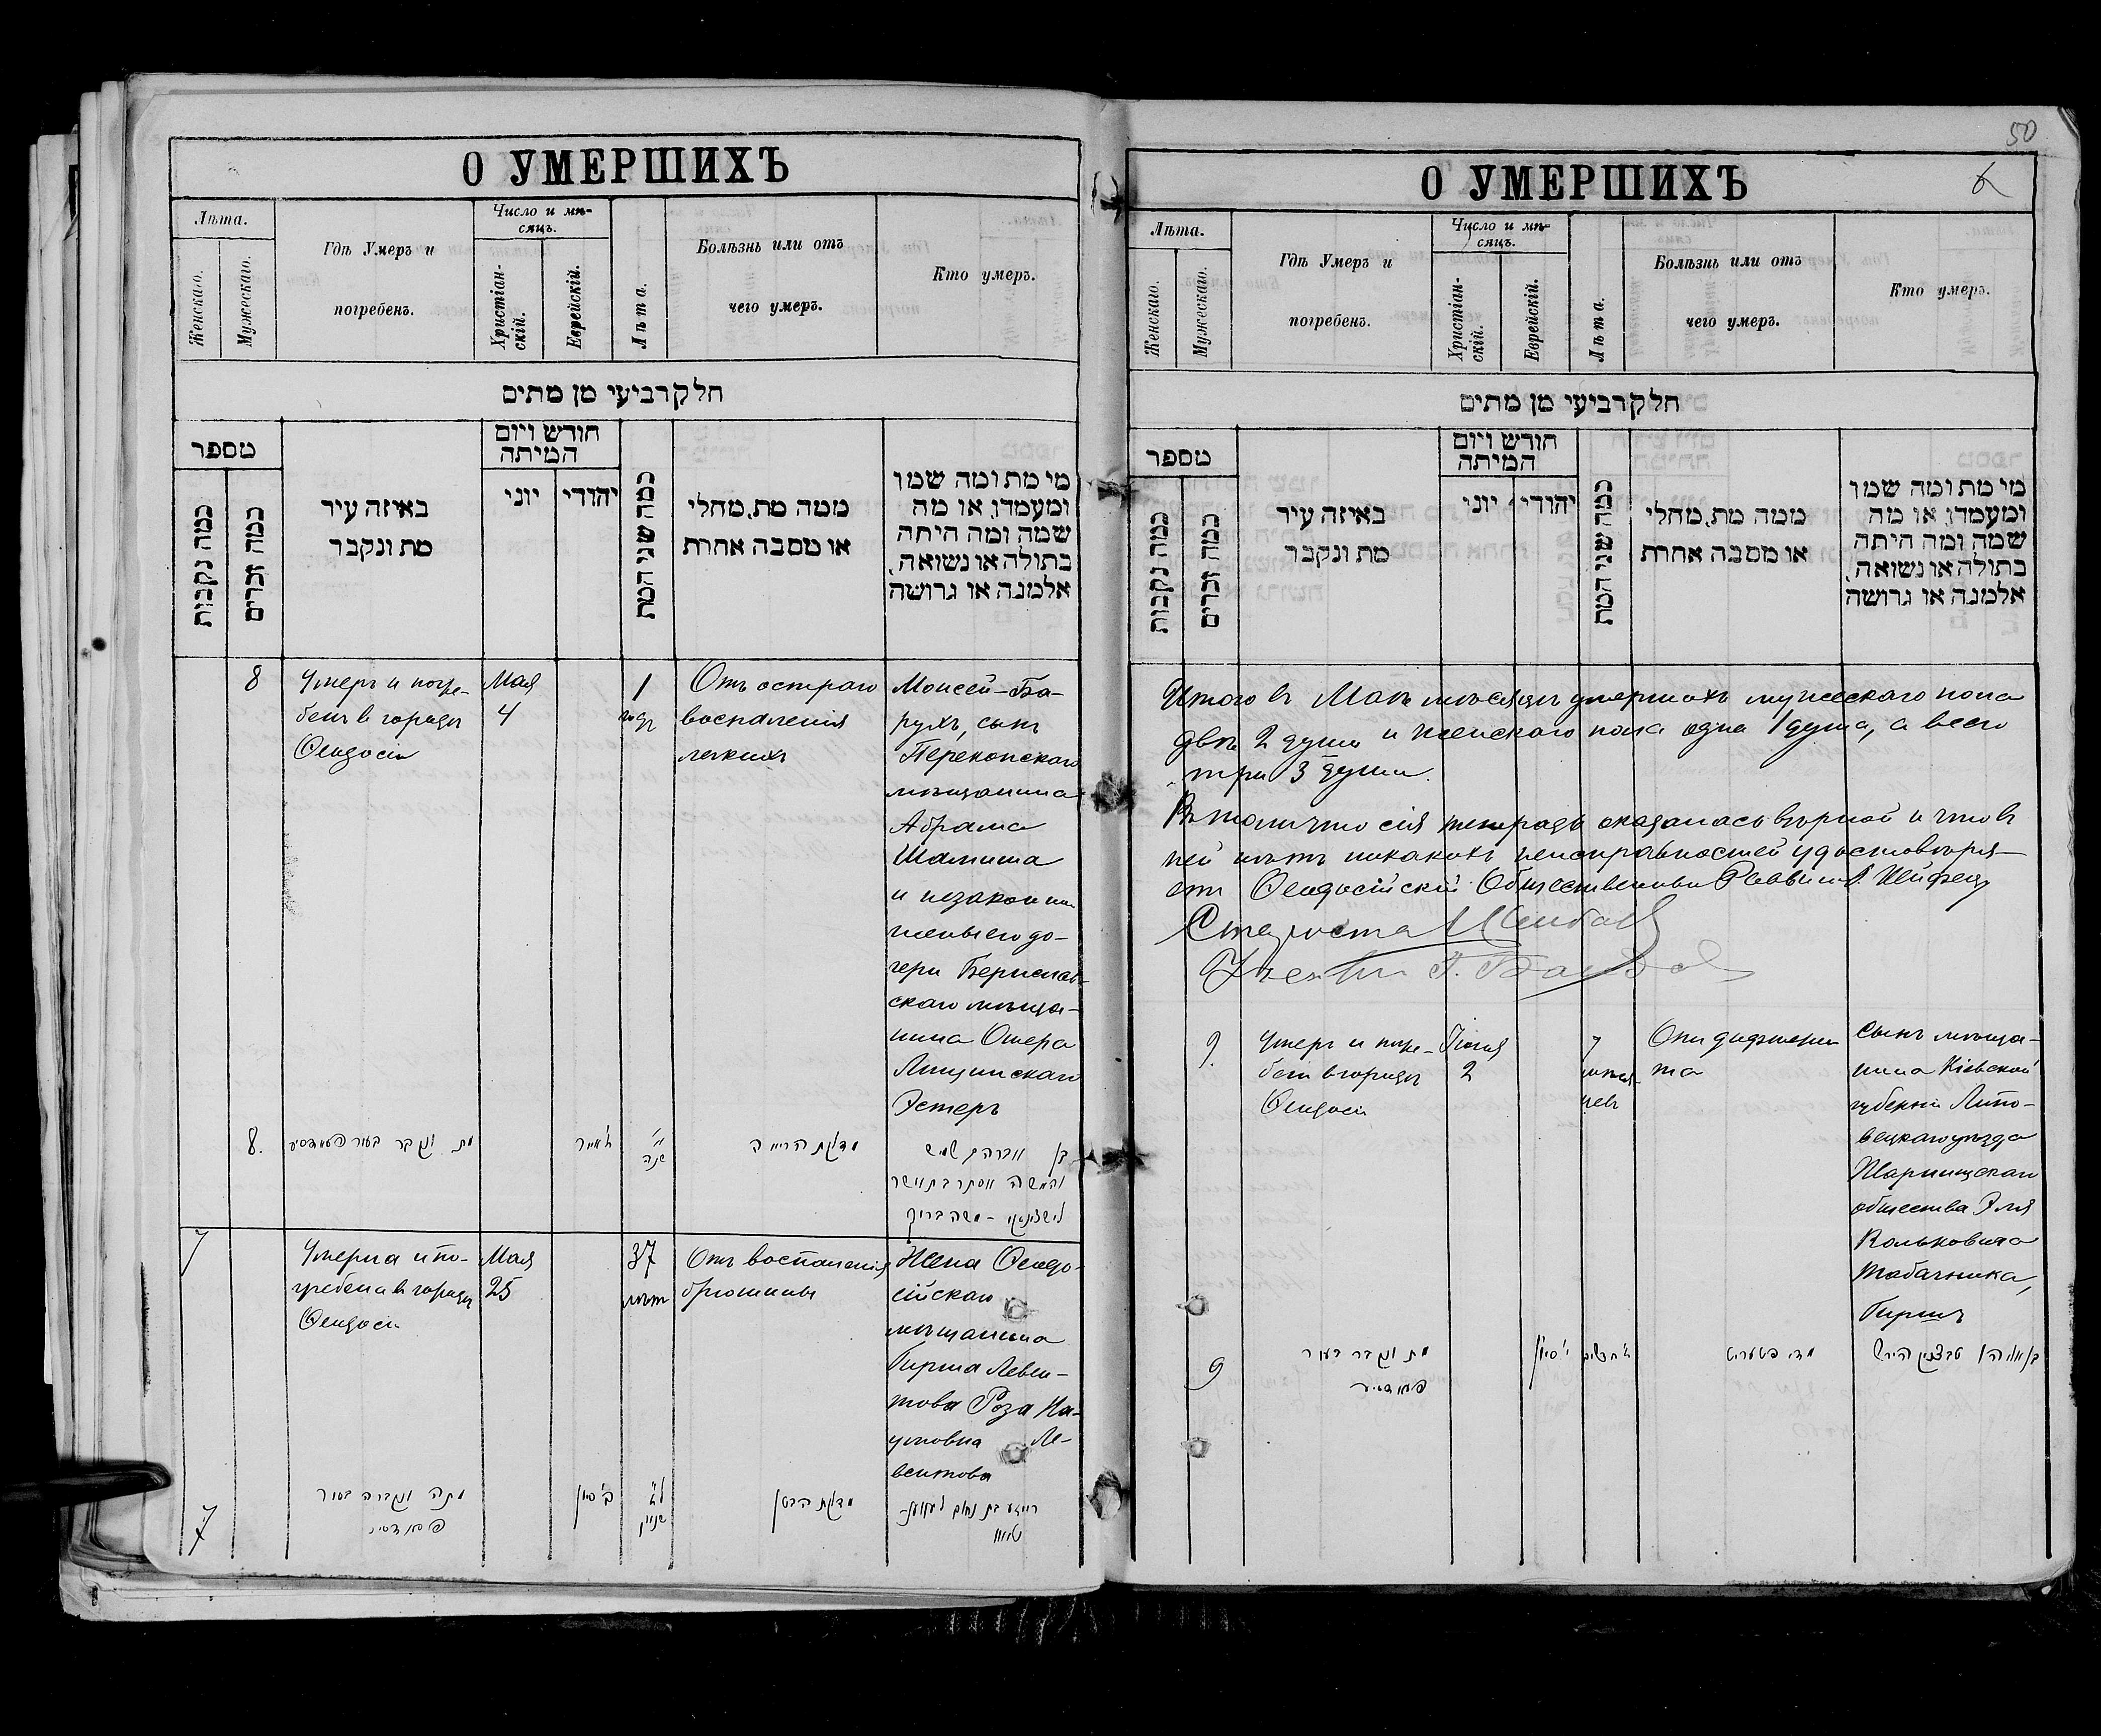 О УМЕРШИХЪ
Лѣта.
Женскаго.
Мужескаго.
Гдѣ Умеръ и
погребенъ.
Число и мѣ-
сяцъ.
Христіан-
скій.
Еврейскій.
Лѣта.
Болѣзнь или отъ
чего умеръ.
Кто умеръ.
חלק רביעי מן מתים
מספר
כמה נקבות
כמה זכרים
באיזה עיר
מת ונקבר
חודש ויום
המיתה
יוני
יהודי
כמה שני המת
ממה מת, מחלי
או מסבה אחרת
מי מת ומה שמו
ומעמדו, או מה
שמה ומה היתה
בתולה או נשואה,
אלמנה או גרושה
8
Умеръ и погре-
бенъ в городѣ
Ѳеодосіи
Мая
4
1
годъ
Отъ остраго
воспаленія
легкихъ
Моисей-Ба-
рухъ, сынъ
Перекопскаго
мѣщанина
Абрама
Шамиша
и незаконно
жены его до-
чери Берислав-
скаго мѣща-
нина Ошера
Лищинскаго
Эстеръ
8.
מת ונקבר בעיר
אייר
שנה
מדלקת הריאה
בן אברהם שמש
ומאשתו אסתר בת אשר
משה ברוך
7
Умерла и по-
гребена в городѣ
Ѳеодосіи
Мая
25
37
лѣтъ
Отъ воспаленія
брюшины
Жена Ѳеодо-
сійскаго
мѣщанина
Гирша Левен-
това Роза На-
умовна Ле-
вентова
7
מתה ונקברה בעיר
סיון
שנים
מדלקת הבטן
רייזע בת נחום
50
О УМЕРШИХЪ
6
Лѣта.
Женскаго.
Мужескаго.
Гдѣ Умеръ и
погребенъ.
Число и мѣ-
сяцъ.
Христіан-
скій.
Еврейскій.
Лѣта.
Болѣзнь или отъ
чего умеръ.
Кто умеръ.
חלק רביעי מן מתים
מספר
כמה נקבות
כמה זכרים
באיזה עיר
מת ונקבר
חודש ויום
המיתה
יוני
יהודי
כמה שני המת
ממה מת, מחלי
או מסבה אחרת
מי מת ומה שמו
ומעמדו, או מה
שמה ומה היתה
בתולה או נשואה,
אלמנה או גרושה
Итого въ Маѣ мѣсяцѣ умершихъ мужескаго пола
двѣ 2 души и женскаго пола одна 1 душа, а всего
три 3 души.
Въ томъ что сія тетрадь оказалась вѣрной и что въ
ней нѣтъ никакихъ неисправностей удостовѣря-
етъ Ѳеодосійскій Общественный Раввинъ
Староста
9.
Умеръ и погре-
бенъ в городѣ
Ѳеодосіи
Іюня
2
7
мѣся-
цевъ
Отъ дифтери-
та
Сынъ мѣща-
нина Кіевской
губерніи Липо-
вецкаго уѣзда
Жорнищскаго
общества Эля
Вольковича
Табачника,
Гиршъ
9
מת ונקבר בעיר
סיון